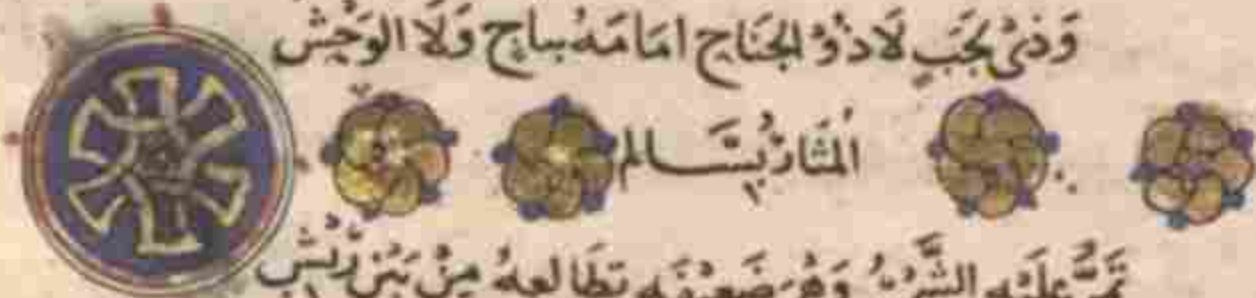 وَذِي لَجَبٍ لَا ذُو الجَنَاحِ امَامَهُ بِنَاجٍ وَلَا الوَحْشُ
المُثَارُ بِسَالِمِ
تَمُرُّ عَلَيْهِ الشَّمْسُ وَهْيَ ضَعِيفَةٌ تطَالِعهُ مِنْ بَيْنِ رِيشِ